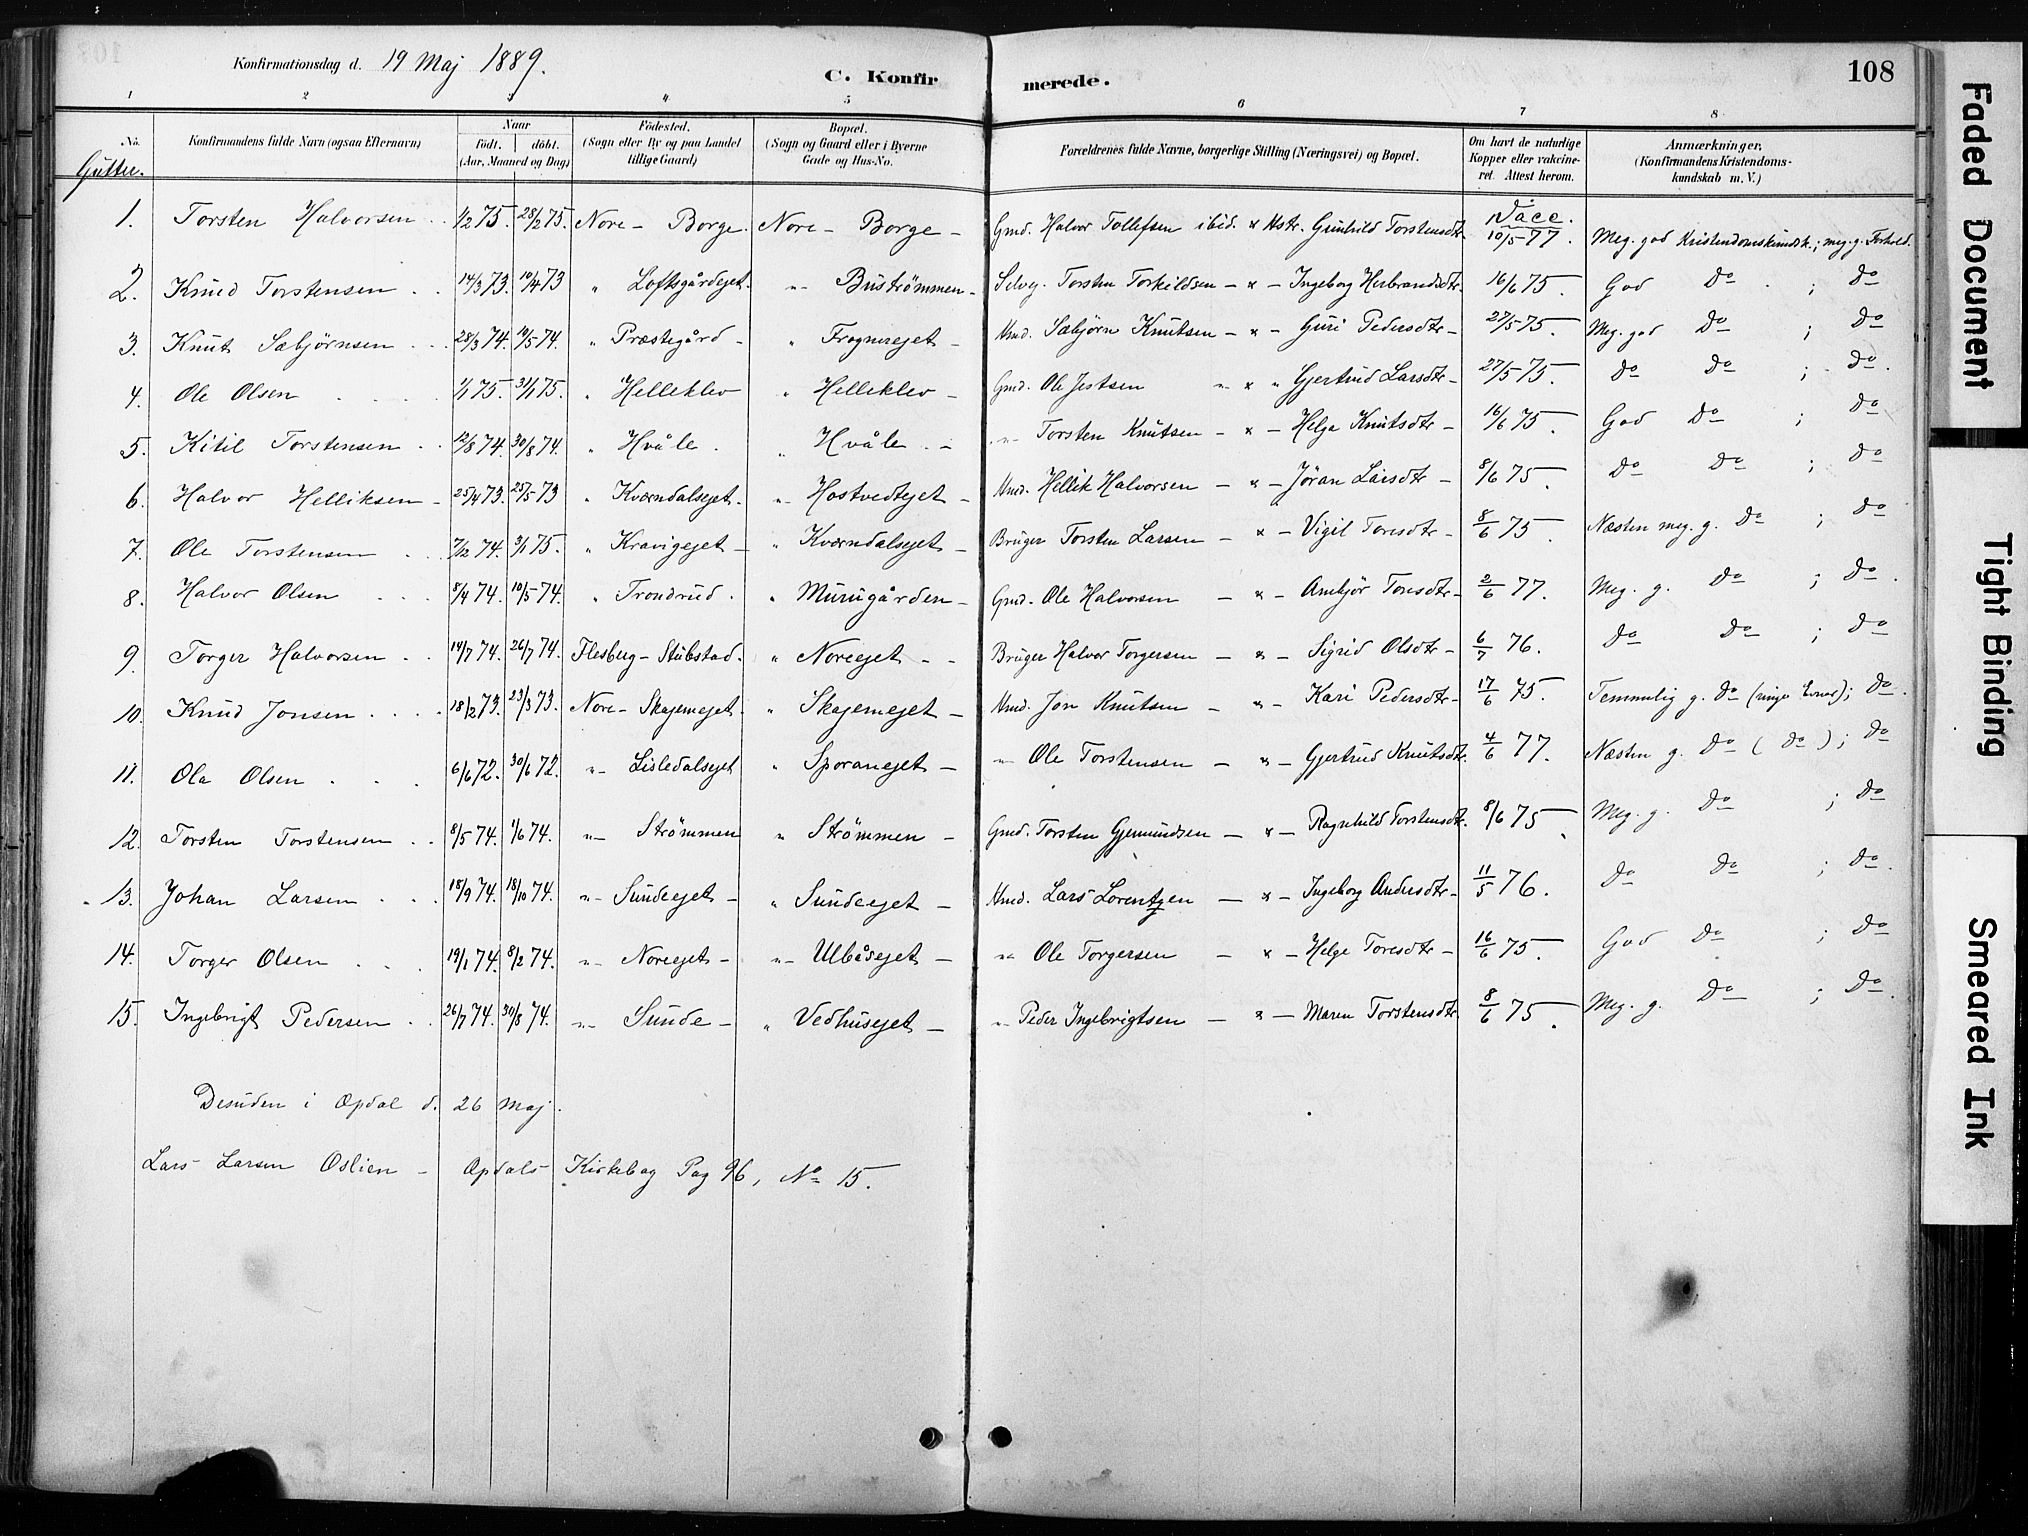 Konfirmationsdag d. 19 Maj 1889.
C. Konfirmerede.
108
1 2 3 4 5 6 7 8
No. Konfirmandens fulde Navn (ogsaa Efternavn) Naar født. døbt. (Aar, Maaned og Dag) Fødested. (Sogn eller By og paa Landet tillige Gaard) Bopæl. (Sogn og Gaard eller i Byerne Gade og Hus-No. Forældrenes fulde Navne, borgerlige Stilling (Næringsvei) og Bopæl. Om havt de naturlige Kopper eller vakcineret. Attest herom. Anmærkninger. (Konfirmandens Kristendomskundskab m. V.)
Gutter.
1. Torsten Halvorsen 1/2 75. 28/2 75. Nore - Borge. Nore - Borge - Gmd. Halvor Tollefsen ibid. x Hstr. Gunhild Torstensdtr Vacc. 10/5 77. Meg. god Kristendomskundsk.; meg. g. Forhold.
2. Knud Torstensen 14/3 73. 10/4 73 " Loftsgårdejet. " Buströmmen - Selvej. Torsten Torkildsen - x - Ingeborg Herbrandsdtr. 16/6 75. God Do ; Do
3. Knut Sæbjørnsen 28/3 74. 10/5 74. " Præstegård - " Frognerejet - Hmd. Sæbjørn Knutsen - x - Guri Pedersdtr - 27/5 75. Meg. god Do ; Do
4. Ole Olsen 1/1 75. 31/1 75. " Helleklev " Helleklev - Gmd. Ole Jestsen " x " Gjertrud Larsdtr - 27/5 75. Do Do ; Do.
5. Kitil Torstensen 12/8 74. 30/8 74. " Hvåle. " Hvåle. - " Torsten Knutsen - x - Helga Knutsdtr - 16/6 75. God Do ; Do
6. Halvor Helliksen - 25/4 73. 25/5 73 " Kværndalsejet. " Hostvedtejet - Hmd. Hellik Halvorsen - x - Jöran Larsdtr - 8/6 75. Do Do ; Do
7. Ole Torstensen 7/12 74. 3/1 75. " Kravigejet - " Kværndalsejet - Bruger Torsten Larsen - x - Vigil Toresdtr - 8/6 75. Næsten meg. g. Do ; Do
8. Halvor Olsen 8/4 74. 10/5 74. " Trondrud. " Murugården - Gmd. Ole Halvorsen - x - Ambjör Toresdtr - 2/6 77. Meg. g. Do ; Do.
9. Torger Halvorsen 14/7 74. 26/7 74. Flesberg - Stubstad. " Noreejet - - Bruger Halvor Torgersen - x - Sigrid Olsdtr - 6/7 76. Do Do ; Do
10. Knud Jonsen 18/2 73. 23/3 73. Nore - Skajemejet. " Skajemejet - Hmd. Jon Knutsen - x - Kari Pedersdtr - 17/6 75. Temmelig g. Do (ringe Evner); Do.
11. Ola Olsen 6/6 72. 30/6 72. " Lisledalsejet " Sporanejet - " Ole Torstensen - x - Gjertrud Knutsdtr. 4/6 77. Næsten g. Do (Do); Do
12. Torsten Torstensen 8/5 74. 1/6 74. " Strömmen " Strømmen - Gmd. Torsten Gjermundsen - x - Ragnhild Torstensdtr. 8/6 75. Meg. g. Do ; Do
13. Johan Larsen 18/9 74. 18/10 74. " Sundeejet - " Sundeejet - Hmd. Lars Lorentzen - x - Ingeborg Andersdtr - 11/5 76. Do Do ; Do
14. Torger Olsen 19/1 74. 8/2 74. " Noreejet - " Ulbåsejet - " Ole Torgersen - x - Helge Toresdtr - 16/6 75. God Do ; Do
15. Ingebrigt Pedersen 26/7 74. 30/8 74. " Sunde - " Vedhusejet - " Peder Ingebrigtsen - x - Maren Torstensdtr. 8/6 75. Meg. g. Do ; Do.
Desuden i Opdal d. 26 Maj.
Lars Larsen Oslien - Opdals Kirkebog Pag 96, No 15.
Faded Document
Tight Binding
Smeared Ink